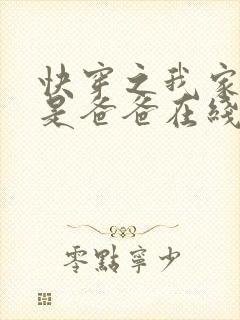 快穿之我家
是爸爸在线
零點寧少